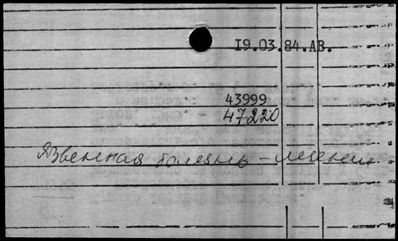 19.03.84.АВ.
43999
47220
Язвенная болезнь – лечение